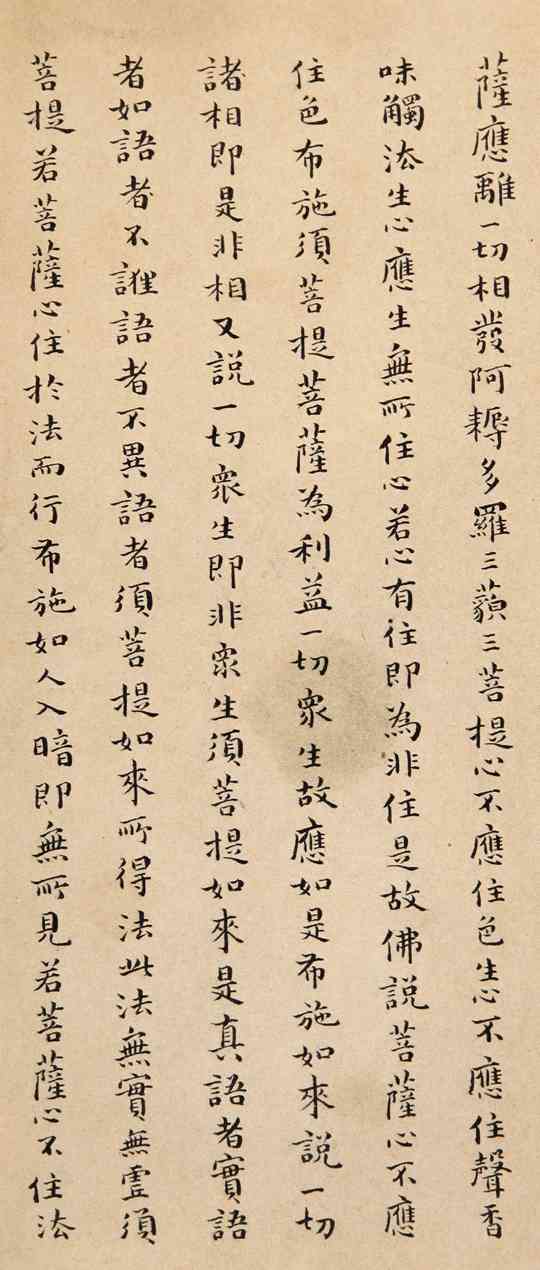 薩應離一切相發阿耨多羅三藐三菩提心不應住色生心不應住聲香
味觸法生心應生無所住心若心有住即為非住是故佛說菩薩心不應
住色布施須菩提菩薩為利益一切衆生故應如是布施如來說一切
諸相即是非相又說一切衆生即非衆生須菩提如來是真語者實語
者如語者不誑語者不異語者須菩提如來所得法此法無實無虛須
菩提若菩薩心住於法而行布施如人入暗即無所見若菩薩心不住法